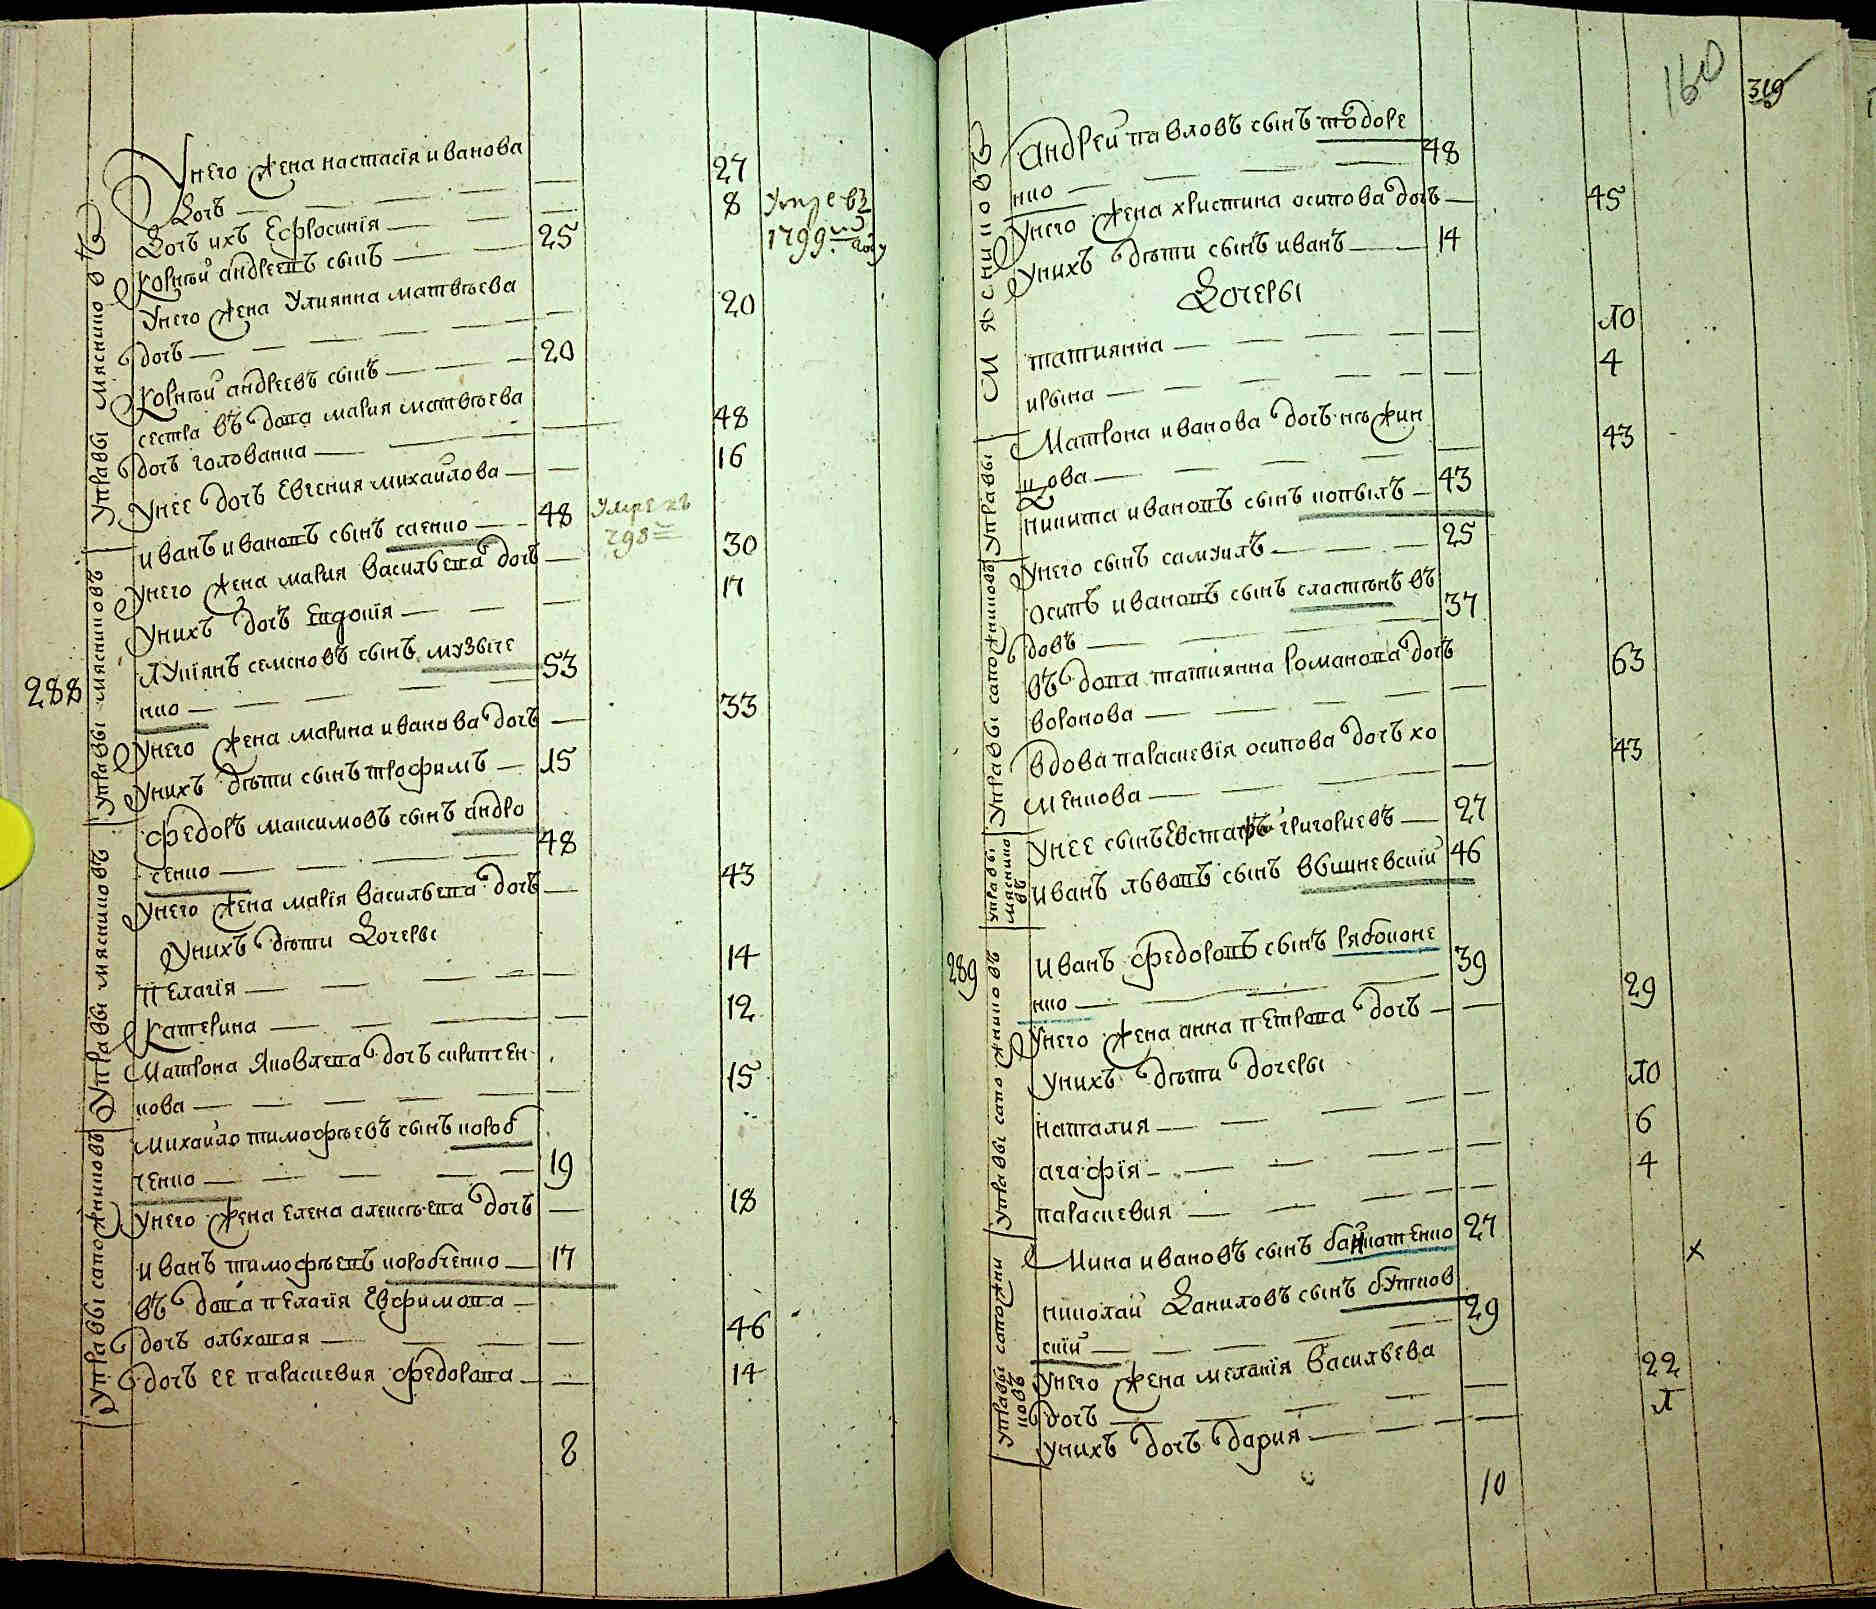 Управы мяснико въ
Унего жена настасія иванова 27
Дочъ
Дочъ ихъ Ефросинія 8 Умре въ
1799 м году
Корнѣй андреевъ сынъ 25
Унего жена Улиянна матвѣева
дочъ 20
Корнѣй андреевъ сынъ 20
сестра въдова мария матвѣева
дочъ голованка 48
Унее дочъ Евгения михайлова 16
Управы мясниковъ
иванъ ивановъ сынъ саенко 48 Умре въ
798
Унего жена мария васильева дочъ 30
Унихъ дочъ Евдокія 17
288
Лукіянъ семеновъ сынъ музыче
нко 53
Унего жена марина иванова дочъ 33
Унихъ дѣти сынъ трофимъ 15
Управы мясниковъ
федоръ максимовъ сынъ андро
сенко 48
Унего жена марія васильева дочъ 43
Унихъ дѣти Дочеры
пелагія 14
Катерина 12
Матрона Яковлева дочъ скрипчен
кова 15
Управы сапожниковъ
Михайло тимофѣевъ сынъ короб
ченко 19
Унего жена елена алексѣева дочъ 18
иванъ тимофѣевъ коробченко 17
въдова пелагія Евфимова
дочъ олховая 46
дочъ ее параскевия федорова 14
8
160
319
Мясниковъ
андрей павловъ сынъ тодоре
нко 48
Унего жена христина осипова дочъ 45
Унихъ дѣти сынъ иванъ 14
Дочеры
татиянна 10
ирына 4
Матрона иванова дочъ нѣжин
цова 43
Управы
никита ивановъ сынъ копылъ 43
Унего сынъ самуилъ 25
Управы сапожниковъ
осипъ ивановъ сынъ сластѣнъ въ
довъ 37
въдова татиянна романова дочъ
воронова 63
вдова параскевія осипова дочъ хо
менкова 43
Унее сынъ Евстафъ григориевъ 27
Управы мяснико въ
иванъ львовъ сынъ вышневскій 46
289
Управы сапожниковъ
иванъ федоровъ сынъ рябоконе
нко 39
Унего жена анна петрова дочъ 29
Унихъ дѣти дочеры
наталия 10
агафія 6
параскевия 4
Управы сапожни ковъ
Мина ивановъ сынъ 27
х
николай Даниловъ сынъ бутков
скій 29
Унего жена меланія васильева
дочъ 22
Унихъ дочъ дария 1
10